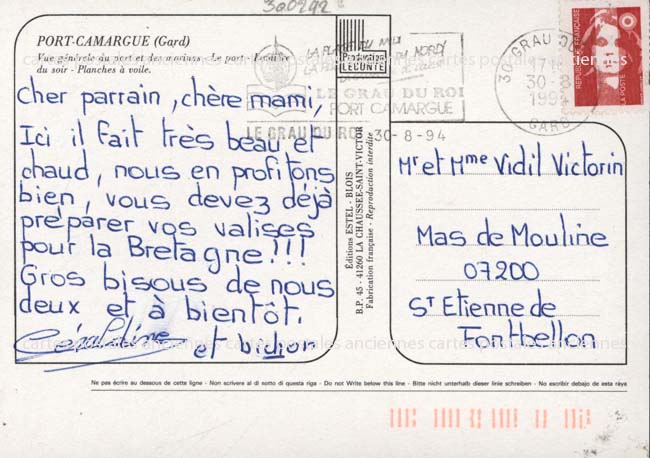 300292
PORT-CAMARGUE (Gard)
Vue générale du port et des marinas - Le port - Lumière
du soir - Planches à voile.
Production
LECONTE
LA PLAGE DU MIDI
LE GRAU DU ROI
PORT CAMARGUE
LE GRAU DU ROI 30-8-94
30 GRAU DU
17H
30-8
1994
GARD
REPUBLIQUE FRANÇAISE
LA POSTE
Cher parrain, chère mami,
Ici il fait très beau et
chaud, nous en profitons
bien, vous devez déjà
préparer vos valises
pour la Bretagne!!!
Gros bisous de nous
deux et à bientôt.
Géraldine et bidion
Éditions ESTEL - BLOIS
B.P. 45 - 41260 LA CHAUSSEE-SAINT-VICTOR
Fabrication française - Reproduction interdite
Mr et Mme Vidil Victorin
Mas de Mouline
07200
St Etienne de
Fontbellon
cartes postales anciennes cartes postales anciennes cartes postales anciennes
Ne pas écrire au dessous de cette ligne - Non scrivere al di sotto di questa riga - Do not Write below this line - Bitte nicht unterhalb dieser linie schreiben - No escribir debajo de esta raye